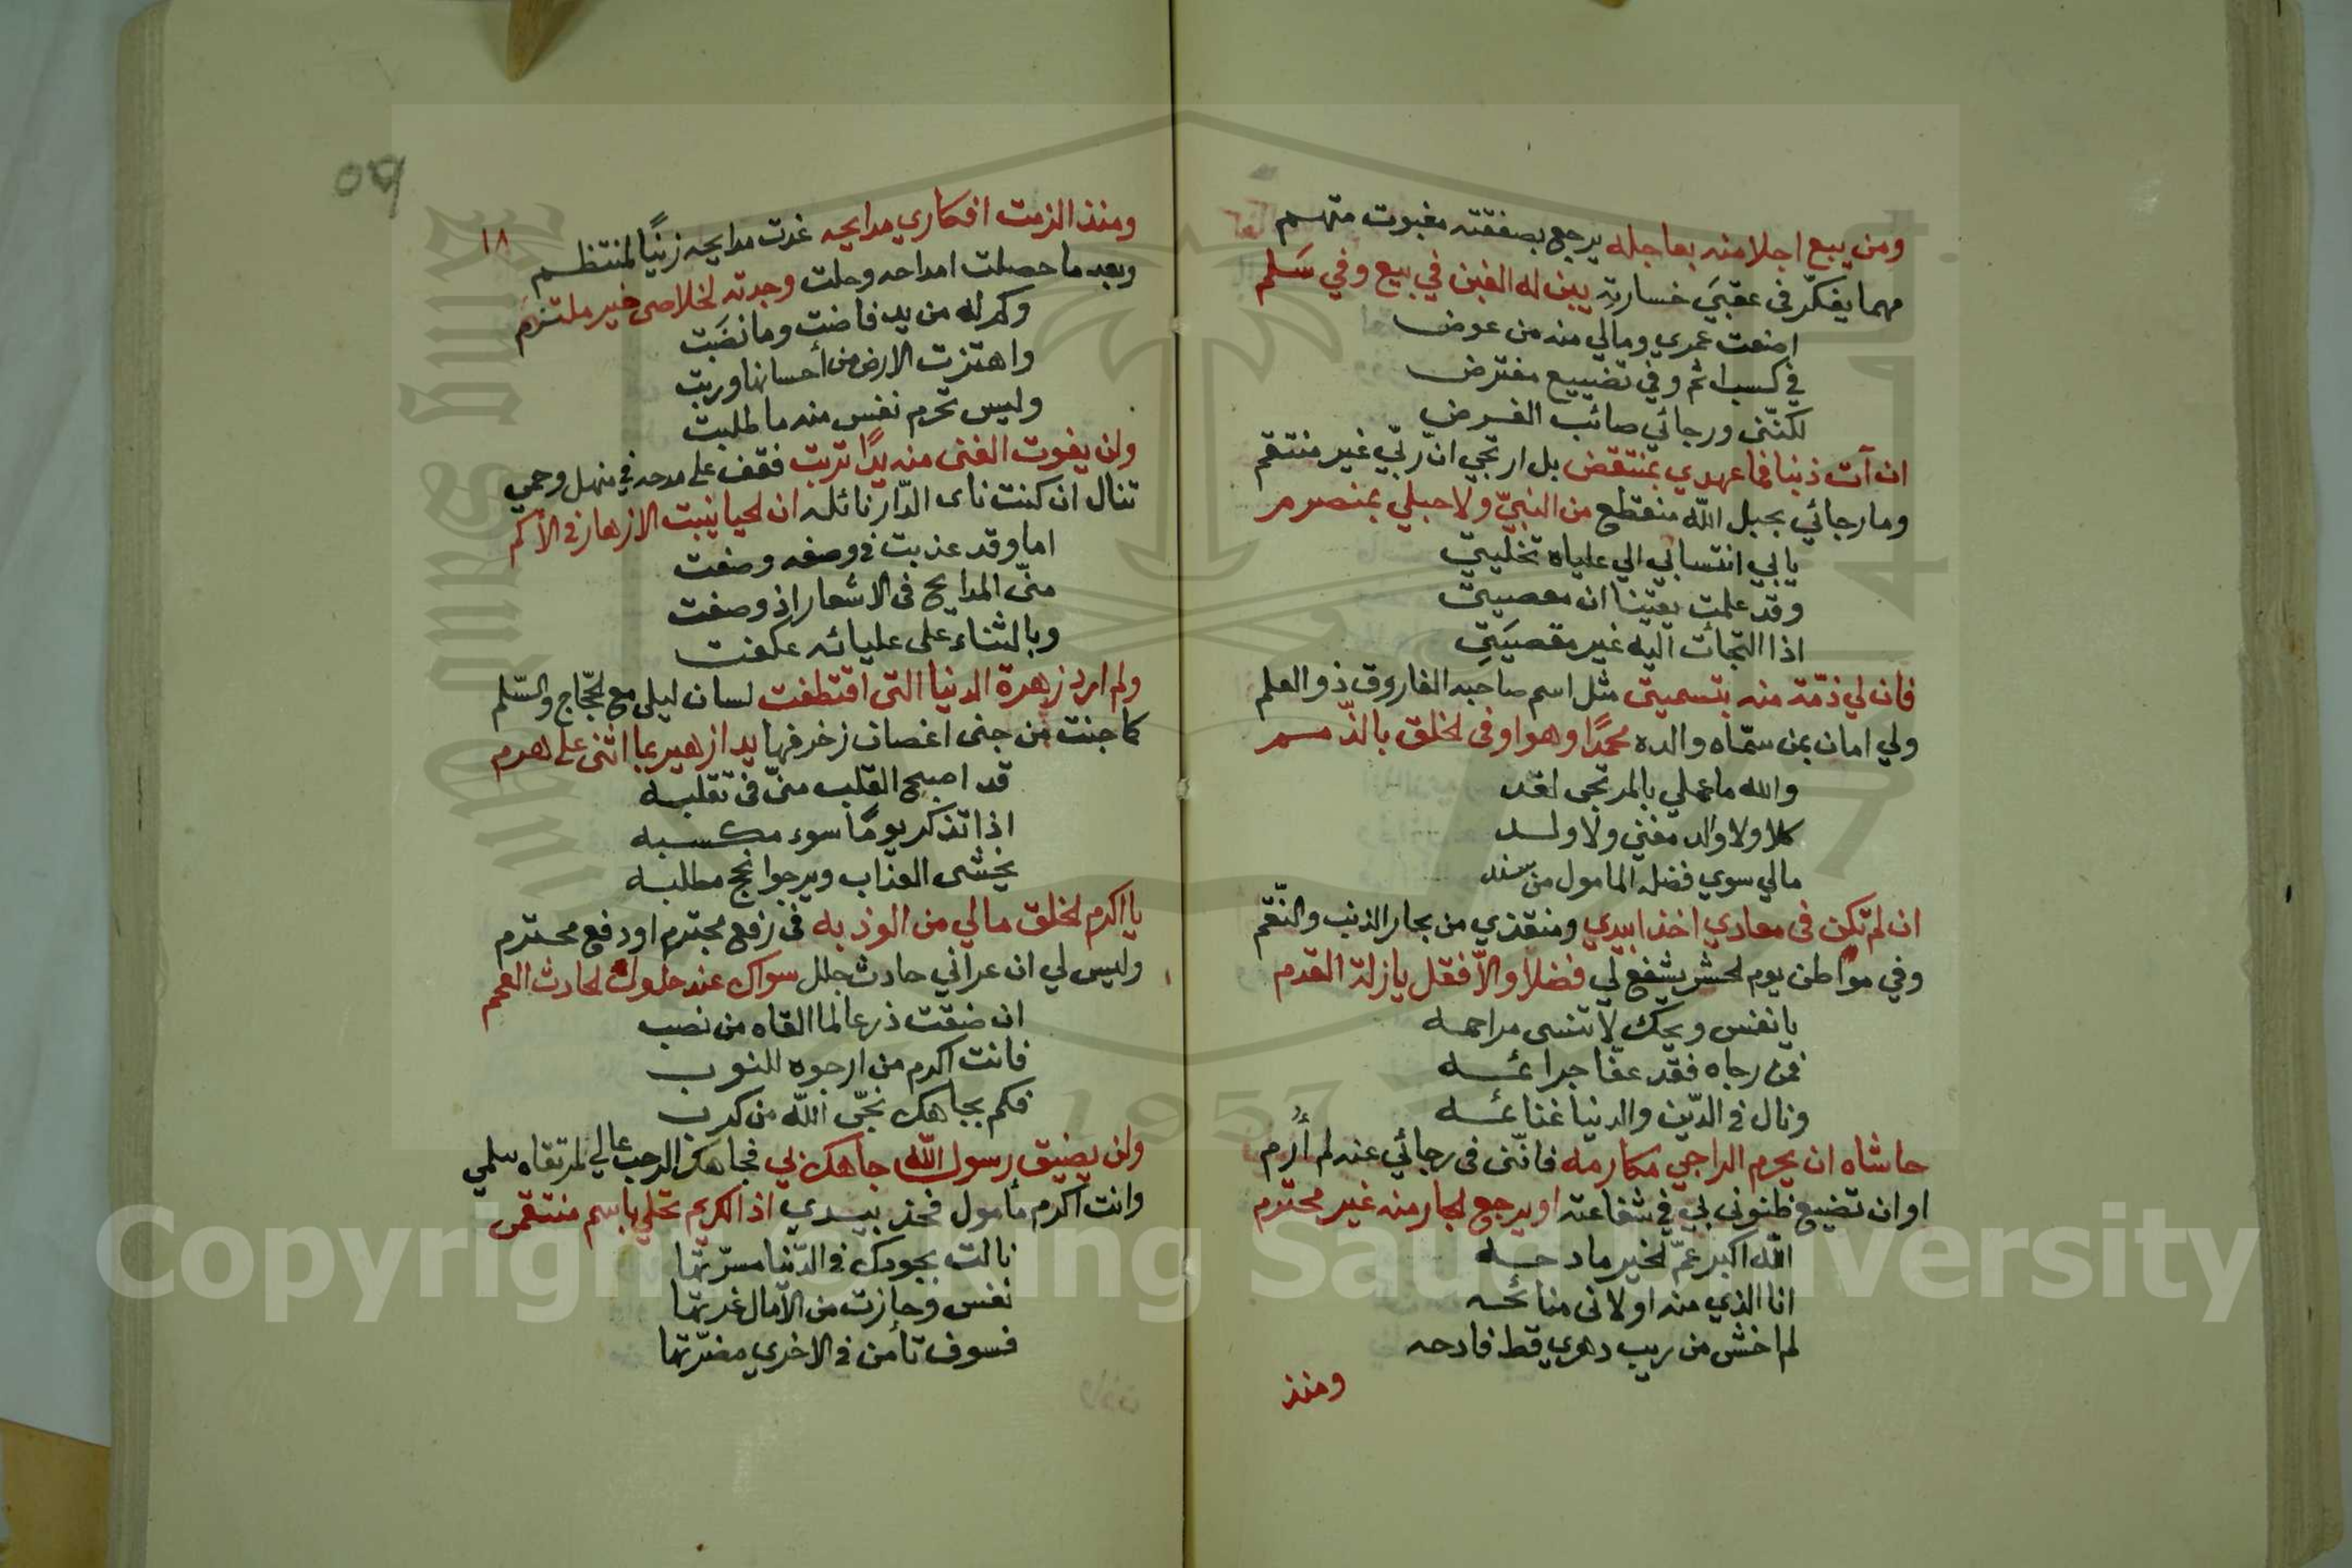 ومن يبع اجلا منه بعاجله يرجع بصفقته مغبوت متهم
مهما يفكّر فى عقبي خسارته يبن له الغبن في بيع وفي سَلم
اضعت عمري ومالي منه من عوض
في كسب اثم وفي تضييع مفترض
لكنّنى ورجائي صائب الغرض
ان آت ذنبا فما عهدي بمنتقض بل ارتجي انّ ربّي غير منتقم
وما رجائي بحبل الله منقطع من النبيّ ولا حبلي بمنصرم
يابي انتسابي الي علياه تخليتي
وقد علمت يقينا ان معصيتي
اذا التجات اليه غير مقصيَتي
فان لي ذمّة منه بتسميتى مثل اسم صاحبه الفاروق ذو العلم
ولي امان بمن سمّاه والده محمدًا وهو اوفى الخلق بالذّمم
والله ما عملي بالمرتجى لغد
كلا ولا والد مغني ولا ولد
مالي سوي فضله المامول من سند
ان لم تكن فى معادي اخذا بيدي ومنقذي من بحار الذنب والنّقم
وفي مواطن يوم الحشر يشفع لي فضلا والّا فقل يا زلة القدم
يا نفس ويحك لا تنسى مراحمه
فمن رجاه فقد عفّا جرائمه
ونال فى الدّين والدنيا غنائمه
حاشاه ان يحرم الراجي مكارمه فانّنى فى رجائي عنه لم أرم
او ان تضيع ظنونى بي في شفاعته او يرجع الجار منه غير محترم
الله اكبر عمّ الخير مادحه
انا الذي منه اولانى منائحه
لم اخش من ريب دهري قط فادحه
ومنذ
٥٩
١٨
ومنذ الزمت افكاري مدايحه غدت مدايحه زينًا لمنتظم
وبعد ما حصلت امداحه وحلت وجدته لخلاصى خير ملتزم
وكم له من يد فاضت وما نضَبت
واهتزت الارض من أحسانها وربت
وليس تحرم نفس منه ما طلبت
ولن يفوت الغنى منه يدًا تربت فقف على مدحه في منهل وحمي
تنال ان كنت ناى الدّار نائله ان الحيا ينبت الازهار فى الأكم
اما وقد عذبت فى وصفه وضفت
منّى المدايح فى الاشعار اذ وصفت
وبالثناء على عليائه عكفت
ولم ارد زهرة الدنيا التى اقتطفت لسان ليلى مع الحجّاج والسّلم
كما جنت من جنى اغصان زخرفها يدا زهير بما اثنى على هرم
قد اصبح القلب منّى فى تقلبه
اذا تذكر يومًا سوء مكسبه
يخشى العذاب ويرجوا نجح مطلبه
يا اكرم الخلق مالي من الوذ به فى رفع مجترم او دفع محترم
وليس لي ان عراني حادث جلل سواك عند حلول الحادث العمم
ان ضقت ذرعا لما القاه من نصب
فانت اكرم من ارجوه للنوب
فكم بجاهك نجّى الله من كرب
ولن يضيق رسول الله جاهك بي فجاهك الرحب عالي المرتقاه سلمي
وانت اكرم مأمول فخذ بيدي اذا الكريم تحلي باسم منتقم
نالت بجودك فى الدّنيا مسرّتها
نفس وحازت من الآمال غرتها
فسوف تأمن فى الاخري مضرّتها
Copyright © King Saud University
1957